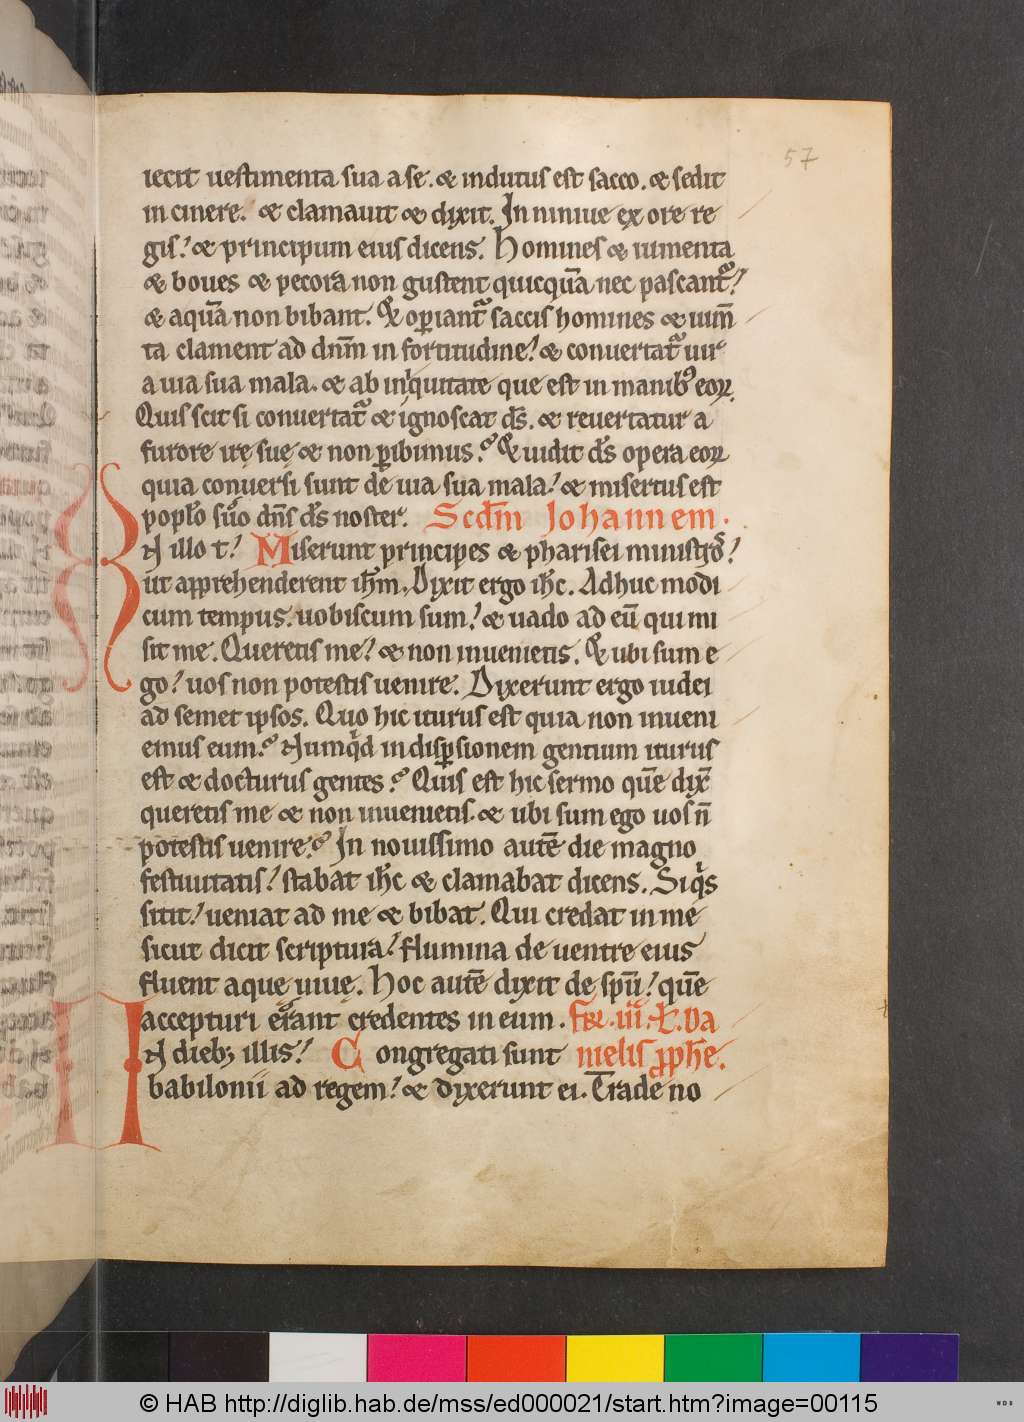 57
iecit uestimenta sua a se. & indutus est sacco. & sedit
in cinere. & clamauit & dixit. In niniue ex ore re
gis! & principum eius dicens. Homines & iumenta
& boues & pecora non gustent quicquā nec pascant᷑!
& aquā non bibant. Et oꝑiant᷑ saccis homines & ium̄
ta clament ad dn̄m in fortitudine! & conuertat᷑ uir
a uia sua mala. & ab iniquitate que est in manibꝰ eoꝝ.
Quis scit si conuertat᷑ & ignoscat ds̄. & reuertatur a
furore irę suę & non ꝑibimus? Et uidit ds̄ opera eoꝝ
quia conuersi sunt de uia sua mala! & misertus est
poplo suo dn̄s ds̄ noster. Scdm̄ Johannem.
N illo t! Miserunt principes & pharisei ministros!
ut apprehenderent ihm̄. Dixit ergo ihc̄. Adhuc modi
cum tempus uobiscum sum! & uado ad eū qui mi
sit me. Queretis me! & non inuenietis. Et ubi sum e
go! uos non potestis uenire. Dixerunt ergo iudei
ad semet ipsos. Quo hic iturus est quia non inueni
emus eum? Numqd in disꝑsionem gentium iturus
est & docturus gentes? Quis est hic sermo quē dix̄
queretis me & non inuenietis. & ubi sum ego uos n̄
potestis uenire? In nouissimo autē die magno
festiuitatis! stabat ihc̄ & clamabat dicens. Siqs
sitit! ueniat ad me & bibat. Qui credat in me
sicut dicit scriptura! flumina de uentre eius
fluent aque uiuę. Hoc autē dixit de spū! quē
accepturi erant credentes in eum. Fr̄. iii. L. Da
I
N diebꝫ illis! Congregati sunt nielis ꝓphe.
babilonii ad regem! & dixerunt ei. Trade no
© HAB http://diglib.hab.de/mss/ed000021/start.htm?image=00115